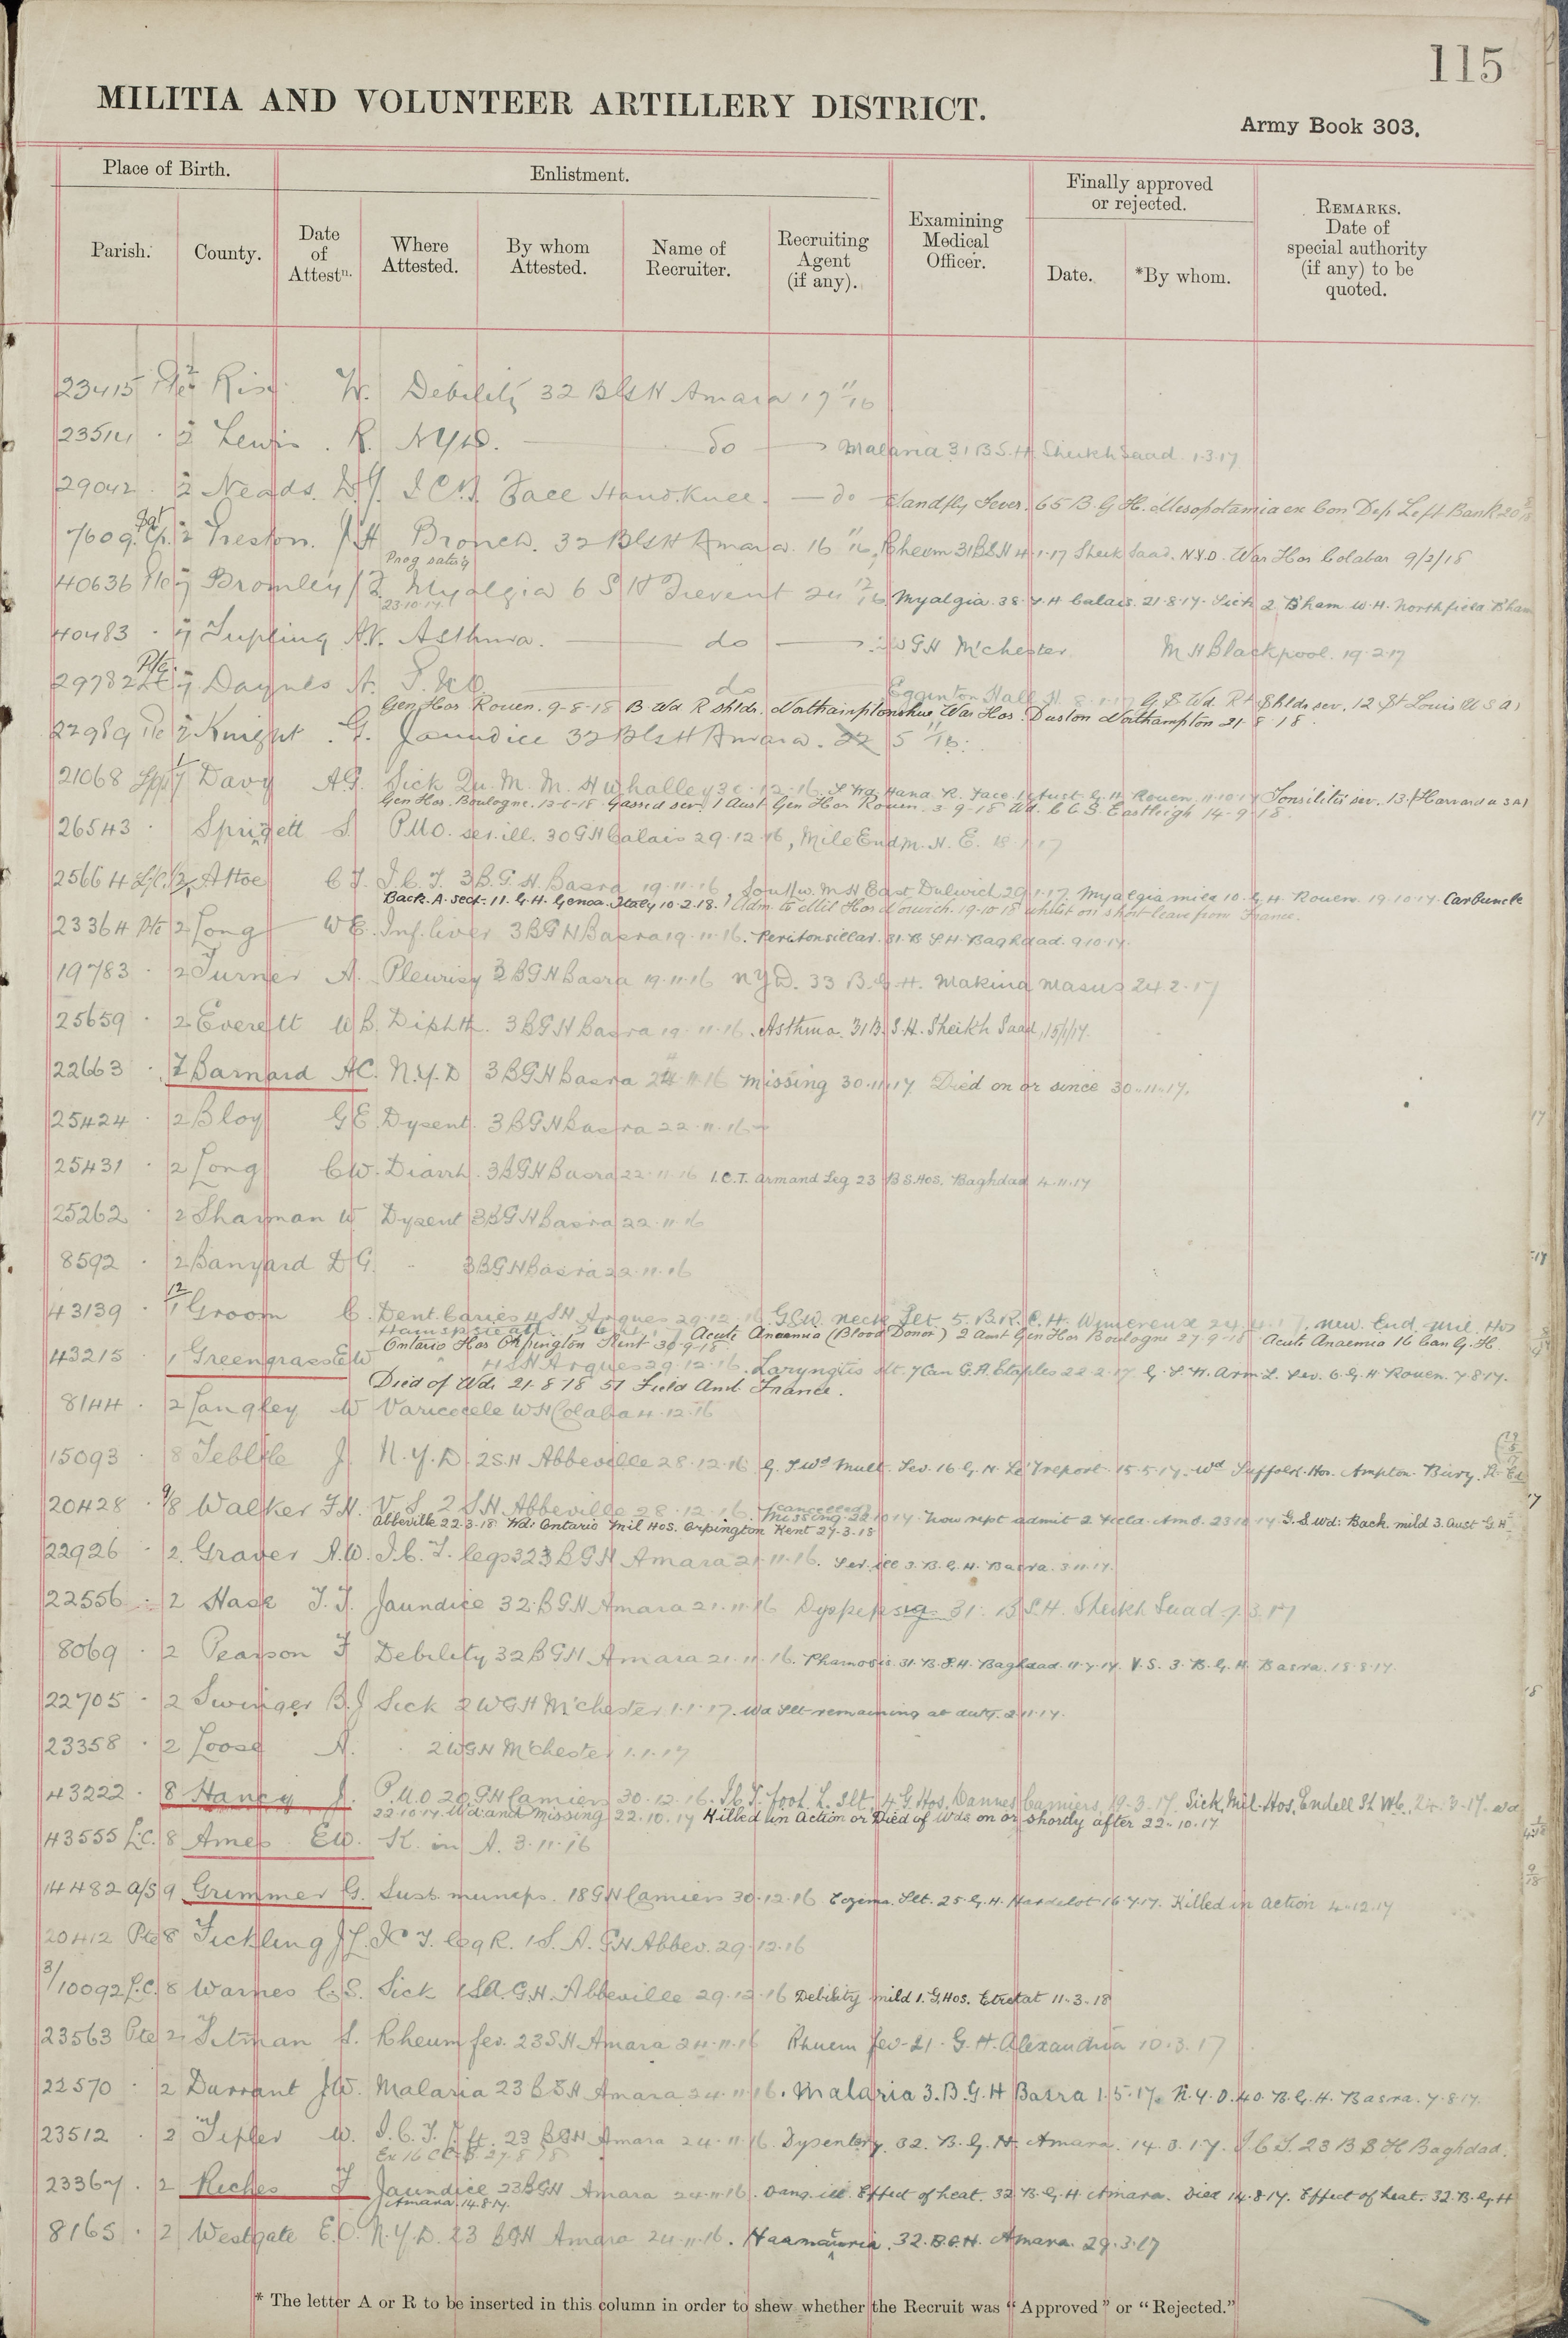 115
MILITIA AND VOLUNTEER ARTILLERY DISTRICT.
Army Book 303.
Place of Birth.
Enlistment.
Finally approved or rejected.
Parish.
County.
Date of Attestⁿ.
Where Attested.
By whom Attested.
Name of Recruiter.
Recruiting Agent (if any).
Examining Medical Officer.
Date.
*By whom.
REMARKS. Date of special authority (if any) to be quoted.
23415 Pte 2 Rix W. Debility 32 BGH Amara 17/11/16
23514 · 2 Lewis. R. NYD. — do — Malaria 31 B.S.H. Sheikh Saad. 1.3.17
29042 · 2 Neads. D.J. I.C.T. Face Hand. Knee. — do — Sandfly Fever. 65 B.G.H. Mesopotamia ex Con Dep Left Bank
7609. Cp. 2 Preston. J H Bronch. 32 BGH Amara. 16/11/16, Rheum 31 BSH 4.1.17 Sheik Saad. N.Y.D. War Hos Colaba 9/2/18
40636 Pte 7 Bromley F. Myalgia 6 S H Frevent 24/12/16 Myalgia. 38. S.H Calais. 21.8.17. Sick 2 B'ham W.H. Northfield B'ham
23.10.17.
40483 · 7 Tupling A.V. Asthma. — do — 2 W G H M'chester. M H Blackpool. 19.2.17
29782 Pte 7 Daynes A. P.U.O. — do — Egginton Hall H. 8.1.17 G.S. Wd. Rt Shldr sev. 12 St Louis U S A
Gen Hos Rouen. 9-8-18 B. Wd R Shldr. Northamptonshire War Hos. Duston Northampton 21-8-18
22989 Pte 2 Knight. G. Jaundice 32 BGH Amara. 22
21068 7 Davy AG. Sick Qu. M. M. H Whalley 30.12.16. Hand R. Face. 1 Aust. G.H. Rouen. 11.10.17 Tonsilitis sev. 13. (Harvard U S A)
Gen Hos. Boulogne. 13-6-18 Gassed sev. 1 Aust. Gen Hos Rouen. 3-9-18 Wd. C C S. Eastleigh 14-9-18.
26543 · Sprigett S. PUO. ser. ill. 30 GH Calais 29.12.16, Mile End M.H. E. 18.1.17
25664 L/C. 2 Attoe C J. I.C.T. 3 B.G.H. Basra 19.11.16, Southw. M H East Dulwich 29.1.17 Myalgia mild 10. G.H. Rouen. 19.10.17. Carbuncle
Back. A. Sect. 11. G.H. Genoa. Italy 10-2-18. Adm. to Mil Hos Norwich. 19-10-18 whilst on short leave from France.
23364 Pte 2 Long W E. Inf. liver 3 BGH Basra 19.11.16. Peritonsillar. 31. B S H. Baghdad. 9.10.17.
19783 · 2 Turner A. Pleurisy 3 BGH Basra 19.11.16 N Y D. 33 B.G.H. Makina Masus 24.2.17
25659 · 2 Everett W B. Diphth. 3 BGH Basra 19.11.16. Asthma. 31 B.S.H. Sheikh Saad, 15/1/17.
22663 · 7 Barnard AC. N.Y.D 3 BGH Basra 24.11.16 Missing 30.11.17. Died on or since 30-11-17.
25424 · 2 Bloy G E Dysent. 3 BGH Basra 22.11.16
25431 · 2 Long C W. Diarrh. 3 BGH Basra 22.11.16 I.C.T. arm and Leg 23 B S. Hos. Baghdad 4.11.17
25262 · 2 Sharman W Dysent 3 BGH Basra 22.11.16
8592 · 2 Banyard D G. 3 BGH Basra 22.11.16
43139 · 12/1 Groom C. Dent. Caries 4 S H Arques 29.12.16 G S W. neck Slt. 5. B.R.C.H. Wimereux New. End. Mil. Hos
Hampstead. Acute Anaemia (Blood Donor) 2 Aust Gen Hos Boulogne 27-9-18 Acute Anaemia 16 Can G.H.
Ontario Hos Orpington Kent 30-9-18
43215 · 1 Greengrass E W 4 S H Arques 29.12.16. Laryngitis slt. 7 Can G.H. Etaples 22.2.17. G.S.W. Arm L. sev. 6. G.H Rouen. 7.8.17.
Died of Wds 21-8-18 51 Field Amb. France.
8144 · 2 Langley W Varicocele WH Colaba 4.12.16
15093 · 8 Tebble J. N.Y.D. 2 S.H Abbeville 28.12.16 G.S Wd Mult. Sev. 16 G.H. Le Treport 15.5.17. Wd Suffolk. Hos. Ampton. Bury.
20428 · 9/8 Walker F H. V.S. 2 S.H. Abbeville 28.12.16. Missing 22.10.17 (cancelled) now rept admit 2 Field. Amb. 23.10.17 G.S.Wd: Back. mild 3. Aust G.H
Abbeville 22.3.18 Wd: Ontario Mil Hos. Orpington Kent 27.3.18
22926 · 2. Graver A.W. I.C.T. legs 32 3 BGH Amara 21.11.16. Ser. ill 3. B.G.H. Basra. 3.11.17.
22556 · 2 Hase T.J. Jaundice 32 BGH Amara 21.11.16 Dyspepsia 31. B S.H. Sheikh Saad 7.3.17
8069 · 2 Pearson F Debility 32 BGH Amara 21.11.16. Phamosis. 31. B.S.H. Baghdad. 11.7.17. V.S. 3. B.G.H. Basra. 18.8.17.
22705 · 2 Swinger B.J Sick 2 WGH M'chester 1.1.17. Wd slt remaining at duty. 2.11.17.
23358 · 2 Loose A. 2 WGH M'chester 1.1.17
43222 · 8 Hancy J. P.U.O 20 GH Camiers 30.12.16. I.C.T. foot L. slt. 4 G. Hos. Dannes Camiers, 19.3.17. Sick, Mil. Hos. Endell St W.C. 24.3.17.
22.10.17. Wd: and Missing 22.10.17 Killed in Action or Died of Wds on or shortly after 22-10-17
43555 L.C. 8 Ames EW. K. in A. 3.11.16
14482 a/S 9 Grimmer G. Sust. mumps. 18 GH Camiers 30.12.16 Eczema. Slt. 25. G.H. Hardelot 16.7.17. Killed in action 4.12.17
20412 Pte 8 Tickling J L. I C T. leg R. 1 S. A. GH Abbev. 29.12.16
3/10092 L.C. 8 Warnes C.S. Sick 1 SA. G.H. Abbeville 29.12.16 Debility mild 1. G. Hos. Etretat 11-3-18
23563 Pte 2 Titman S. Rheum fev. 23 S H Amara 24.11.16 Rhuem fev-21. G.H. Alexandria 10.3.17
22570 · 2 Durrant J W. Malaria 23 B S H Amara 24.11.16. Malaria 3. B.G.H Basra 1.5.17. N.Y.D. 40. B.G.H. Basra. 7.8.17.
23512 · 2 Tipler W. I.C.T. 23 BGH Amara 24.11.16. Dysentery. 32. B.G.H. Amara. 14.3.17. I C T. 23 B S H Baghdad.
23367 · 2 Riches F Jaundice 23 BGH Amara 24.11.16. Dang. ill. Effect of heat. 32. B.G.H Amara. Died 14.8.17. Effect of heat. 32. B.G.H
Amara. 14.8.17.
8165 · 2 Westgate E.O. N.Y.D. 23 BGH Amara 24.11.16. Haematuria. 32. B.G.H. Amara. 29.3.17
* The letter A or R to be inserted in this column in order to shew whether the Recruit was “Approved” or “Rejected.”